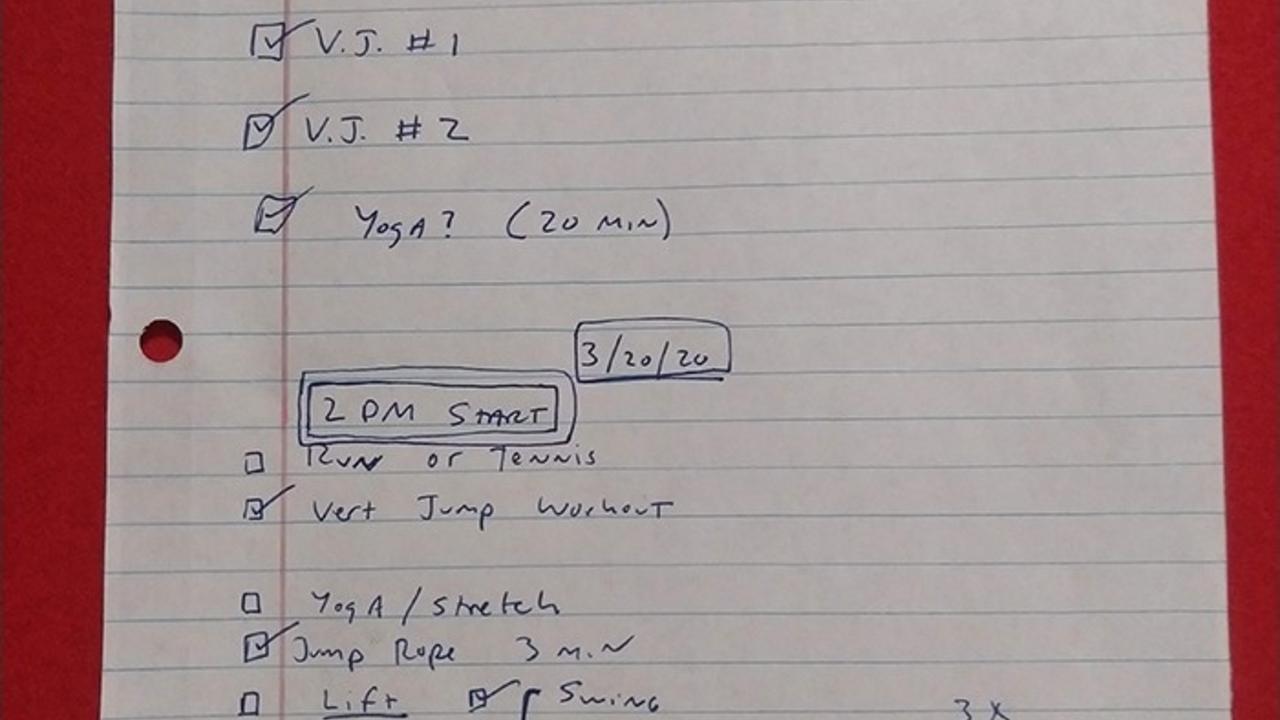 V.J. #1
V.J. #2
Yoga? (20 min)
3/20/20
2 PM START
Run or Tennis
Vert Jump Workout
Yoga/Stretch
Jump Rope 3 min
Lift Swing
3 x